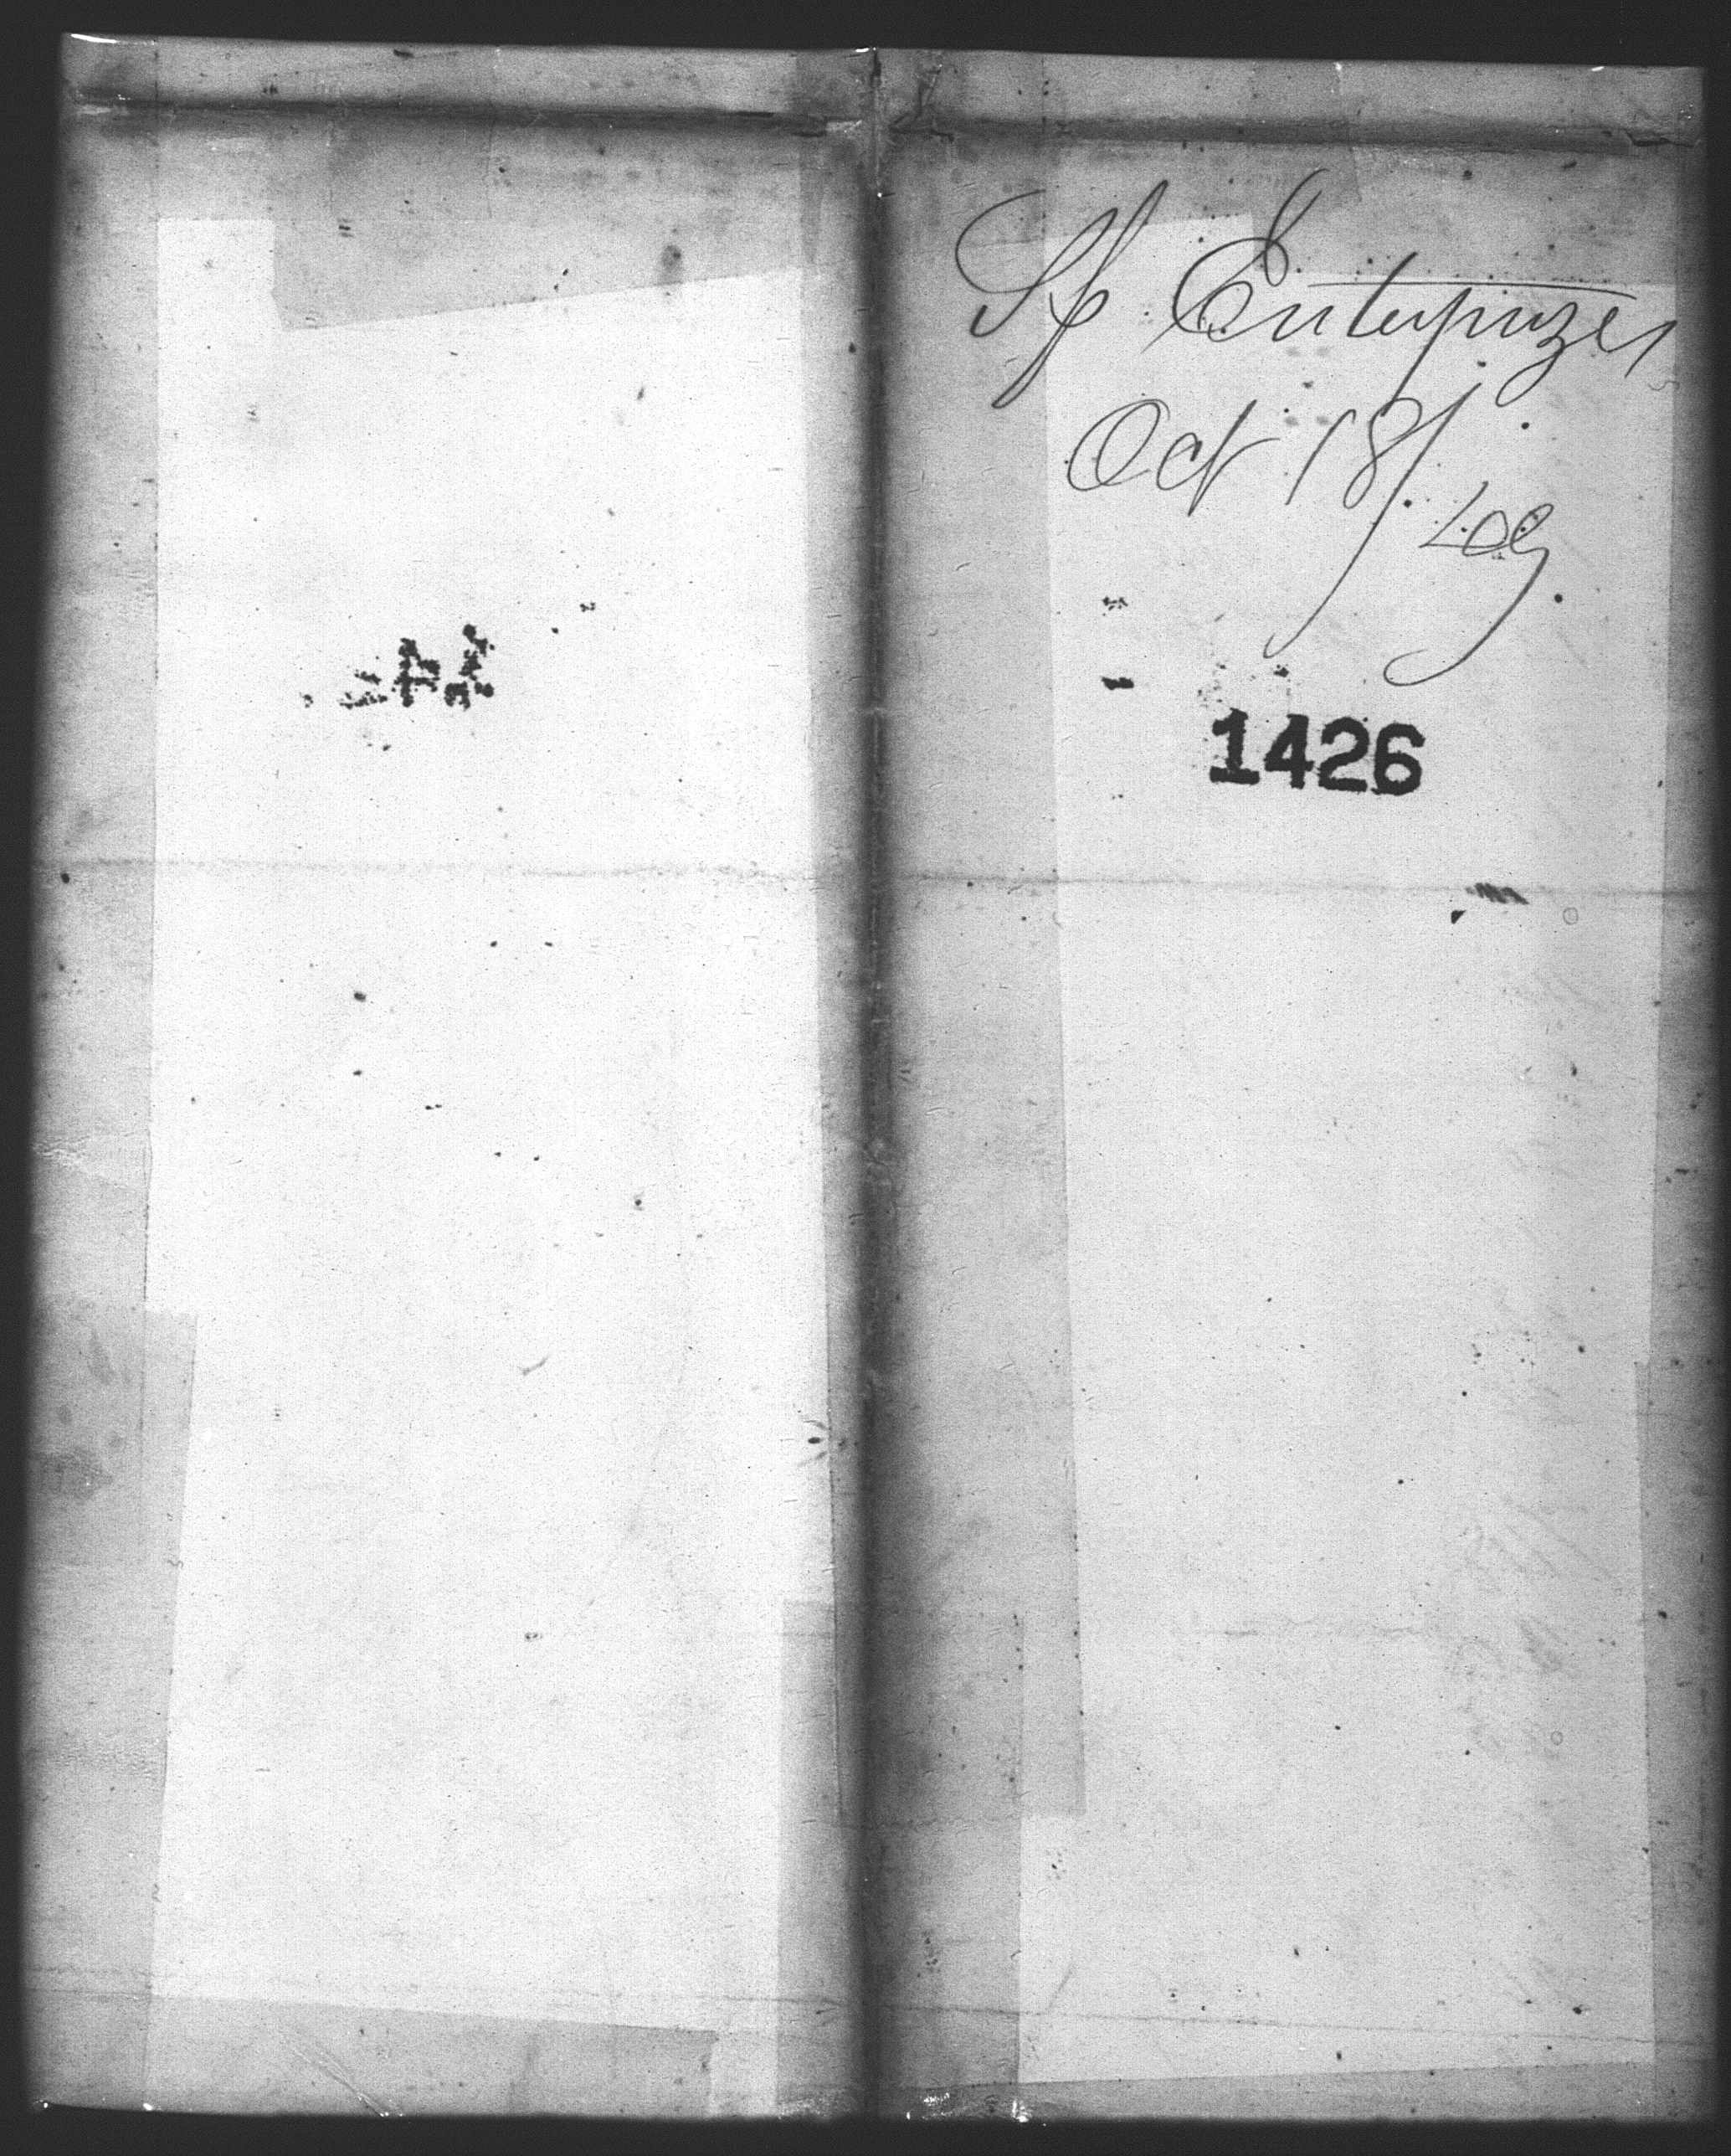 Sf Enterprizes
Oct 18/
1426